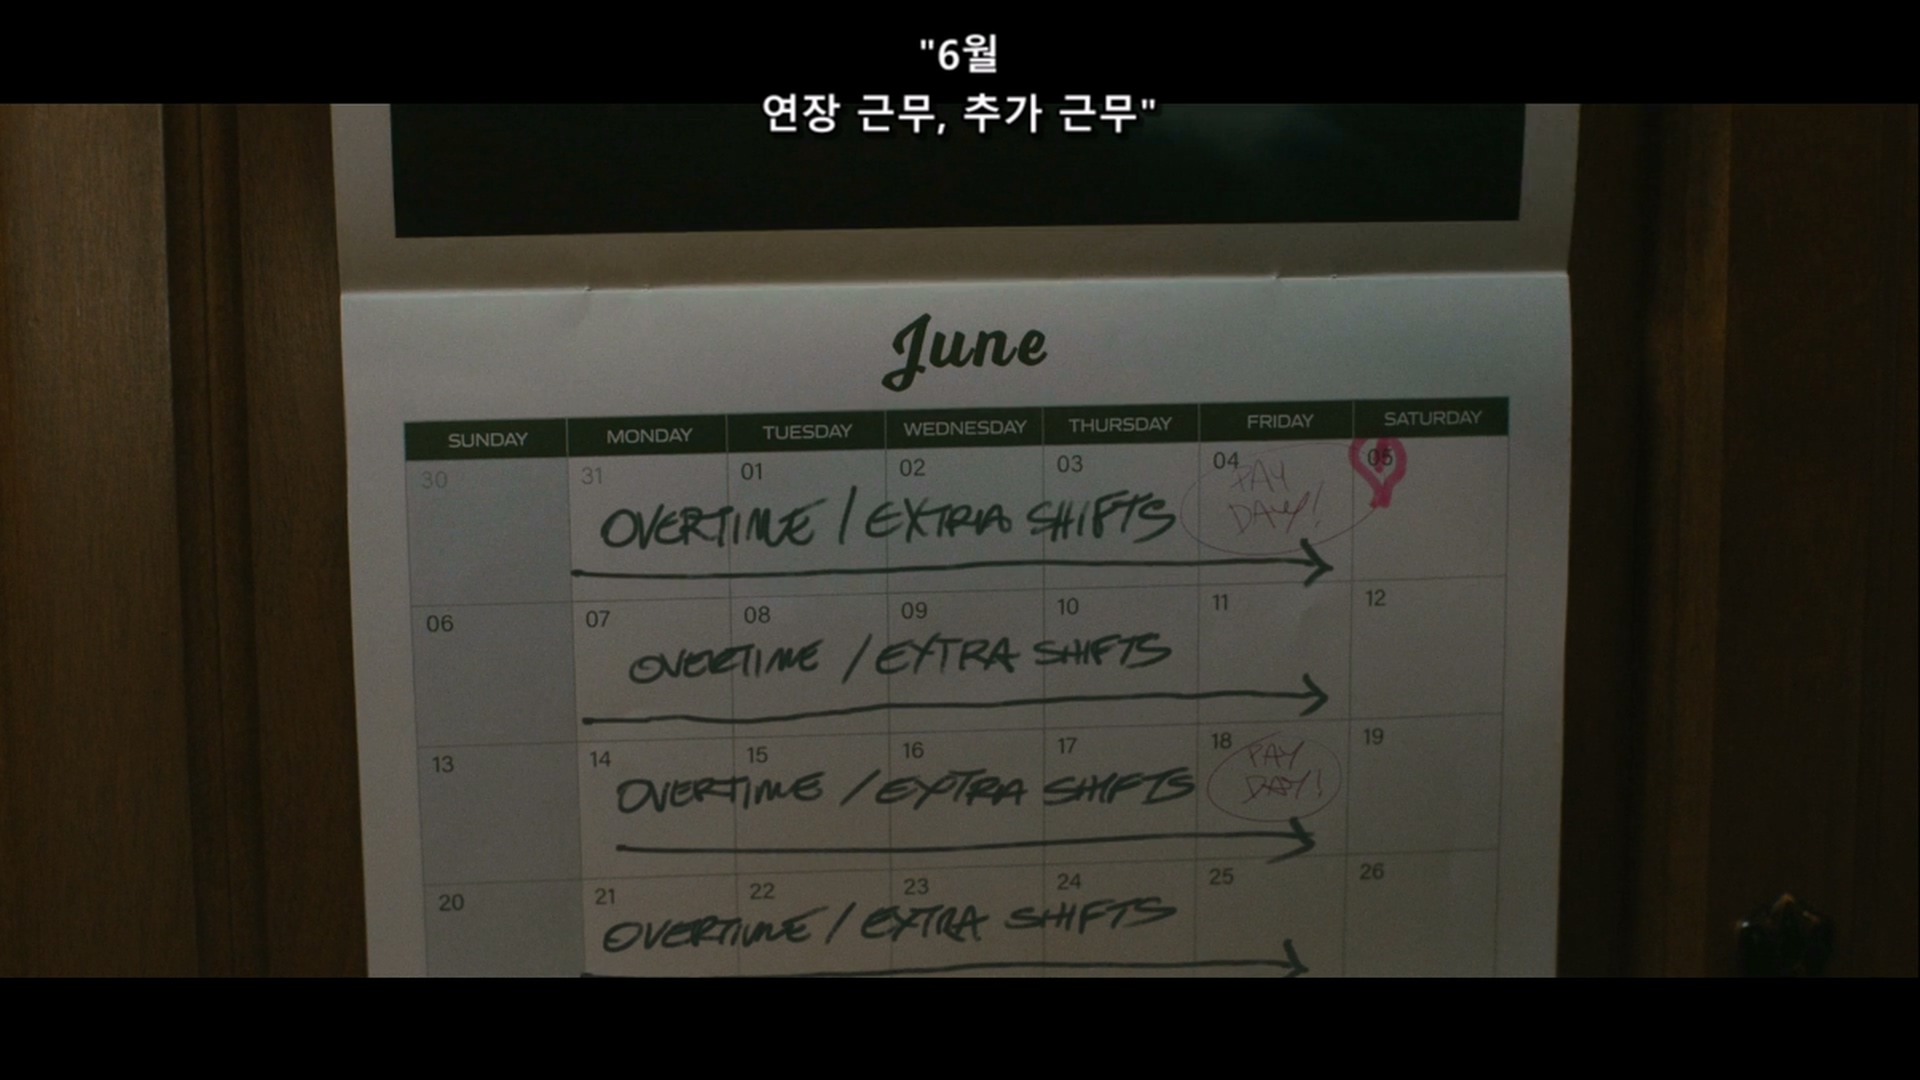 "6월
연장 근무, 추가 근무"
June
SUNDAY MONDAY TUESDAY WEDNESDAY THURSDAY FRIDAY SATURDAY
30 31 01 02 03 04 05
PAY
DAY!
OVERTIME / EXTRA SHIFTS
06 07 08 09 10 11 12
OVERTIME / EXTRA SHIFTS
13 14 15 16 17 18 19
PAY
DAY!
OVERTIME / EXTRA SHIFTS
20 21 22 23 24 25 26
OVERTIME / EXTRA SHIFTS